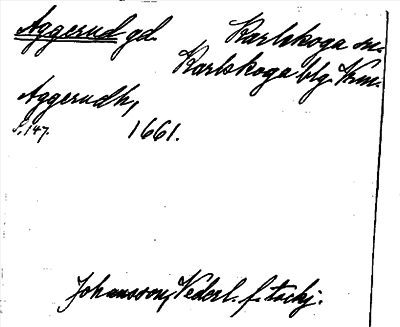 Aggerud gd. Karlskoga sn.
Karlskoga blg. Vrm.
Aggerudh,
S. 147. 1661.
Johansson, Nederl. f. tackj.